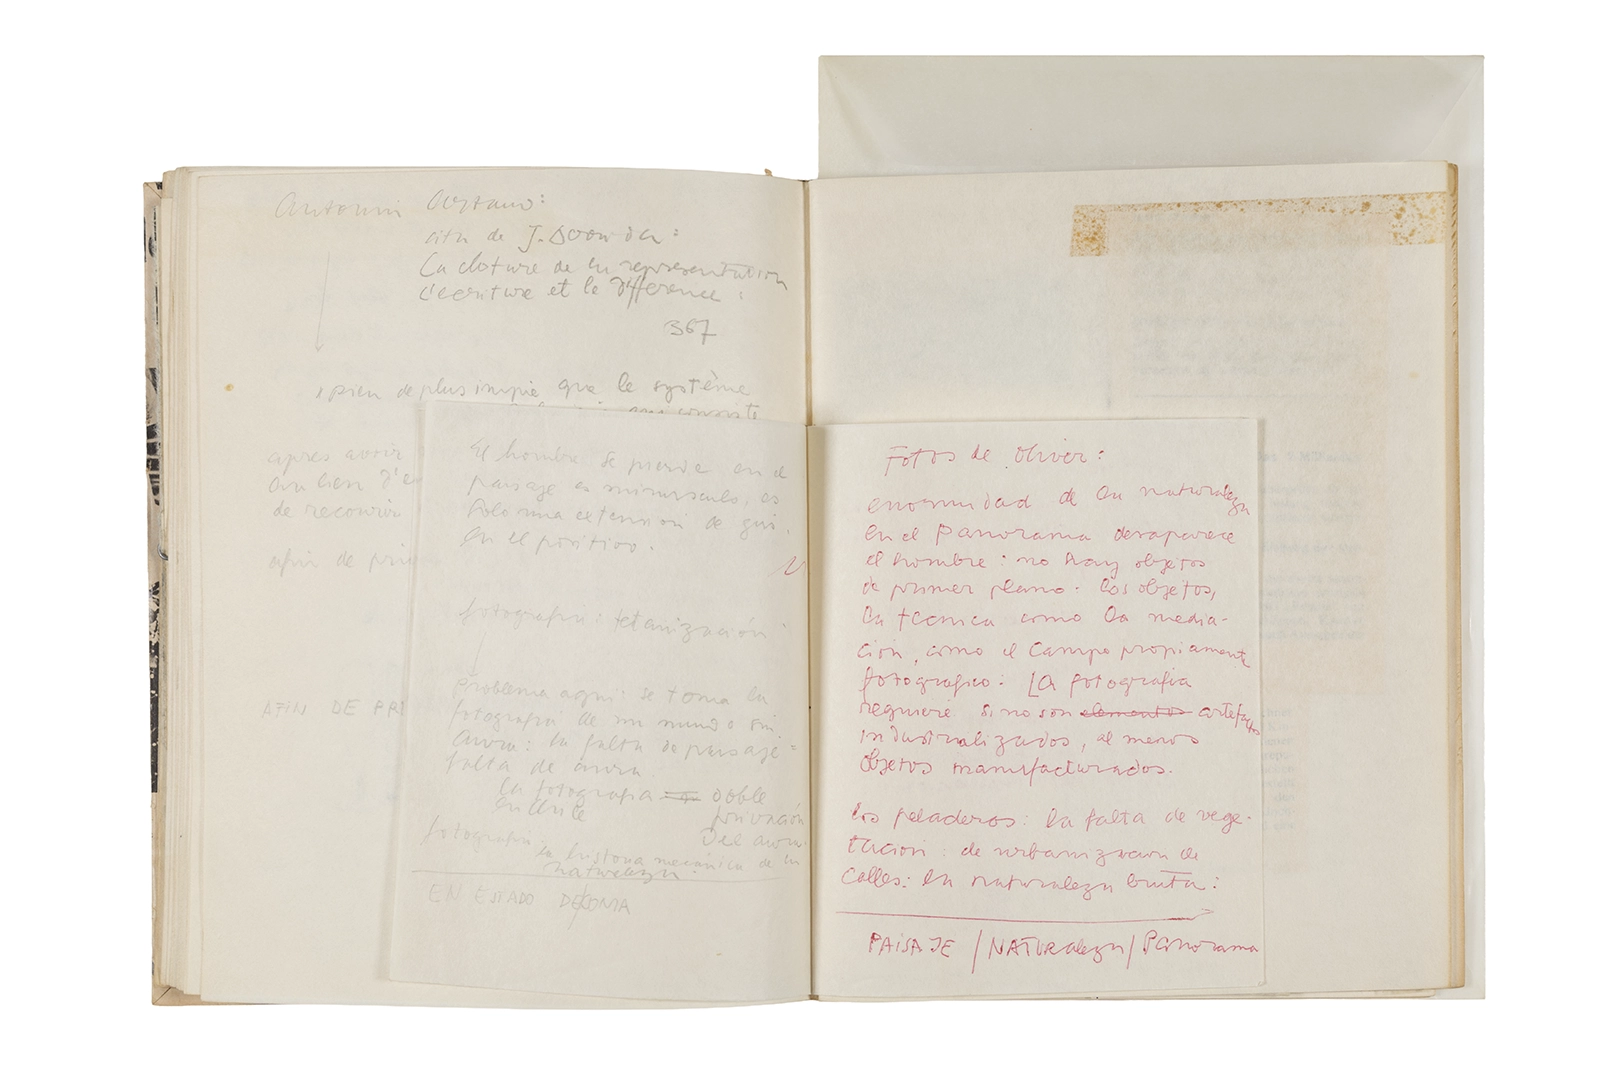 Antonin Artaud:
cita de J. Derrida:
La cloture de la representation
L'ecriture et la difference:
367
rien de plus impie que le système
qui consiste
apres avoir
au lieu d'e
de reconnai
afin de pri
AFIN DE PRI
El hombre se pierde en el
paisaje es minusculo, es
solo una extension de gris.
en el positivo.
fotografia: tetanización
problema aqui: se toma la
fotografia de un mundo sin
Aura: la falta de paisaje =
falta de aura
la fotografia doble
en Chile privación
Del aura.
fotografia
la historia mecánica de la
naturaleza.
EN ESTADO DE
Fotos de Oliver:
enormidad de la naturaleza
en el panorama desaparece
el hombre: no hay objetos
de primer plano. Los objetos,
la tecnica como la media-
ción, como el campo propiamente
fotografico: La fotografia
requiere si no son elementos artefactos
industrializados, al menos
objetos manufacturados.
los peladeros: la falta de vege-
tacion: de urbanizacion de
calles: la naturaleza bruta:
PAISAJE / NATURaleza / Panorama